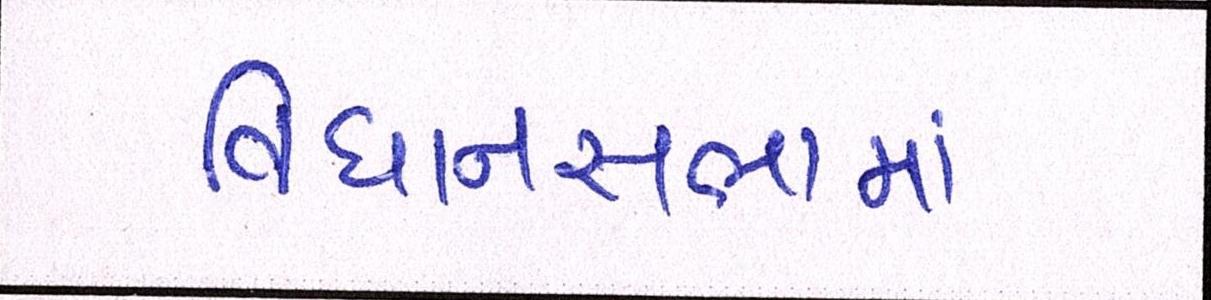 વિધાનસભામાં